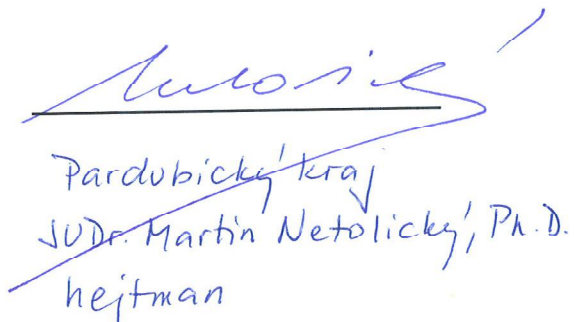 Pardubický kraj
JUDr. Martin Netolický, Ph.D.
hejtman